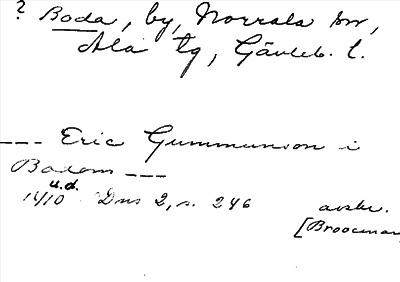 ? Boda, by, Norrala sn,
Ala tg, Gävleb. l.
--- Eric Gummunson i
Bodom ---
u.d.
14/10 Dns 2, s. 246 avskr.
[Brooceman